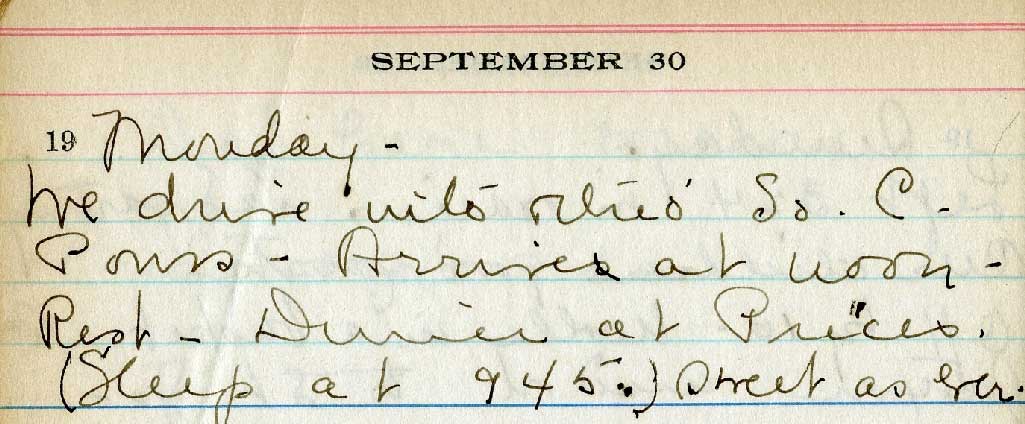 SEPTEMBER 30
19 Monday -
We drive into So. C.
- Arrives at noon -
Rest - Dinner at Prices.
(Sleep at 945.) Sweet as ever.